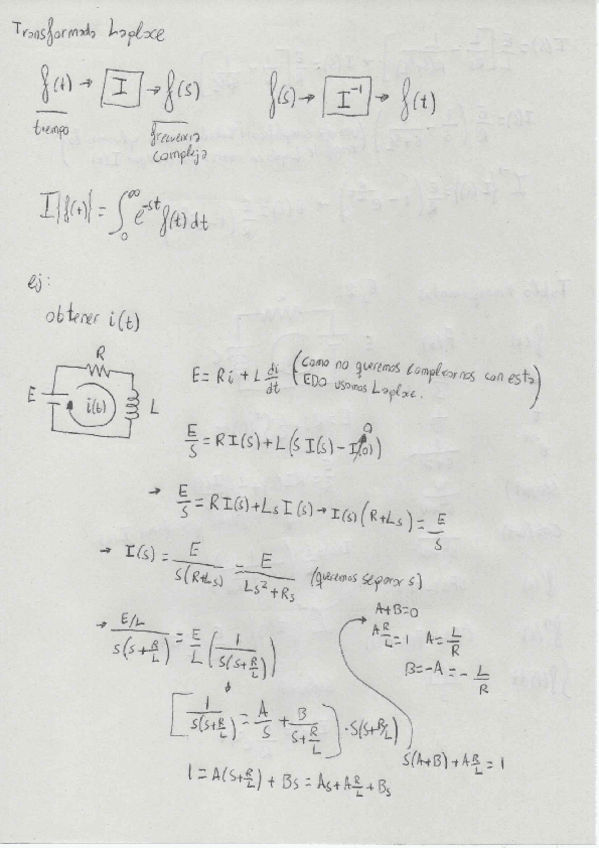 Transformada Laplace
f(t) → I → f(s)
tiempo
frecuencia
compleja
f(s) → I⁻¹ → f(t)
I|f(t)| = ∫₀^∞ e^(-st) f(t) dt
ej:
obtener i(t)
R
E
i(t)
L
E = Ri + L di/dt (como no queremos complicarnos con esta
EDO usamos Laplace.)
E/S = R I(s) + L(S I(s) - I(0)) 0
→ E/S = R I(s) + Ls I(s) → I(s)(R+Ls) = E/S
→ I(s) = E/S(R+Ls) = E/Ls²+Rs (queremos separar s)
→ E/L / S(S+R/L) = E/L (1/S(S+R/L))
A+B=0
A R/L = 1 A = L/R
B = -A = - L/R
[1/S(S+R/L) = A/S + B/S+R/L) · S(S+R/L)
S(A+B) + A R/L = 1
1 = A(S+R/L) + Bs = As + A R/L + Bs